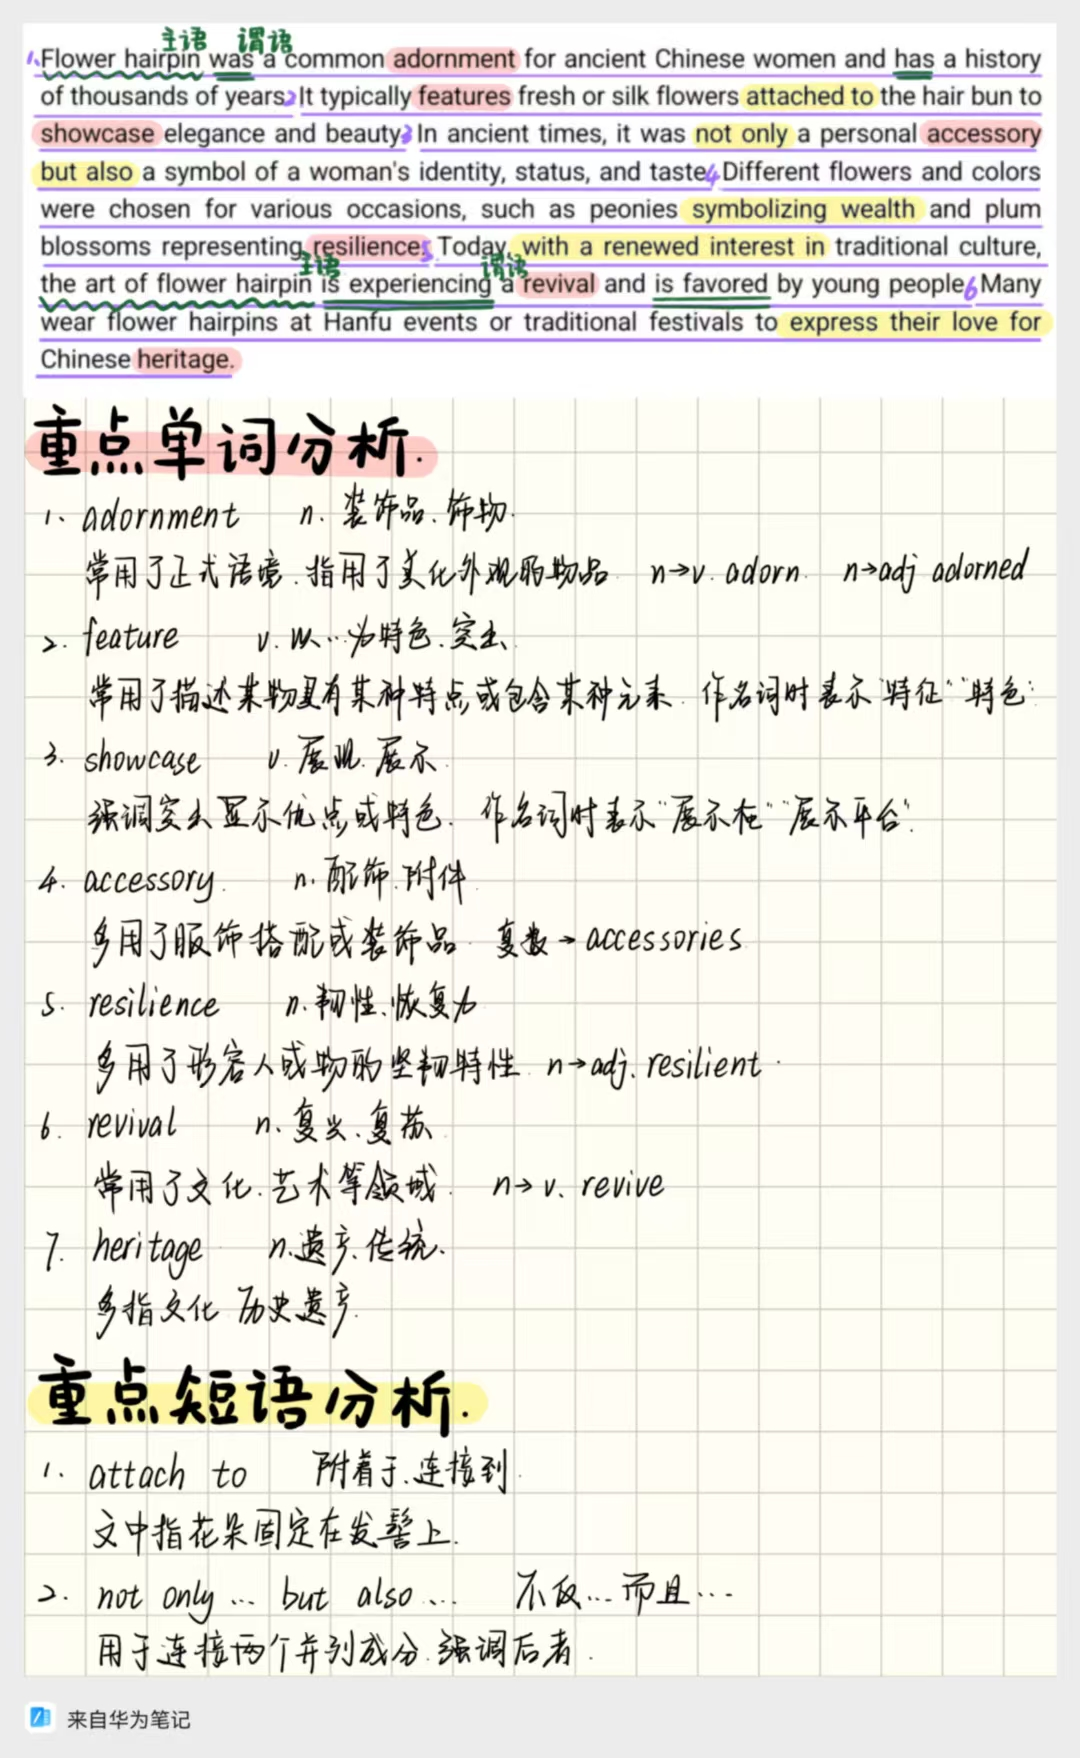 主语 谓语
1. Flower hairpin was a common adornment for ancient Chinese women and has a history
of thousands of years. 2 It typically features fresh or silk flowers attached to the hair bun to
showcase elegance and beauty. 3 In ancient times, it was not only a personal accessory
but also a symbol of a woman's identity, status, and taste. 4 Different flowers and colors
were chosen for various occasions, such as peonies symbolizing wealth and plum
blossoms representing resilience. 5 Today, with a renewed interest in traditional culture,
主语 谓语
the art of flower hairpin is experiencing a revival and is favored by young people. 6 Many
wear flower hairpins at Hanfu events or traditional festivals to express their love for
Chinese heritage.
重点单词分析.
1. adornment n. 装饰品、饰物.
常用于正式语境、指用于美化外观的物品 n→v. adorn. n→adj adorned
2. feature v. 以…为特色、突出
常用于描述某物具有某种特点或包含某种元素. 作名词时表示"特征""特色".
3. showcase v. 展现. 展示.
强调突出显示优点或特色. 作名词时表示"展示柜""展示平台".
4. accessory. n. 配饰、附件
多用于服饰搭配或装饰品. 复数→accessories
5. resilience n. 韧性、恢复力
多用于形容人或物的坚韧特性. n→adj. resilient.
6. revival n. 复兴、复苏.
常用于文化、艺术等领域. n→v. revive
7. heritage n. 遗产、传统.
多指文化 历史遗产.
重点短语分析.
1. attach to 附着于、连接到.
文中指花朵固定在发髻上.
2. not only … but also … 不仅…而且…
用于连接两个并列成分、强调后者.
来自华为笔记